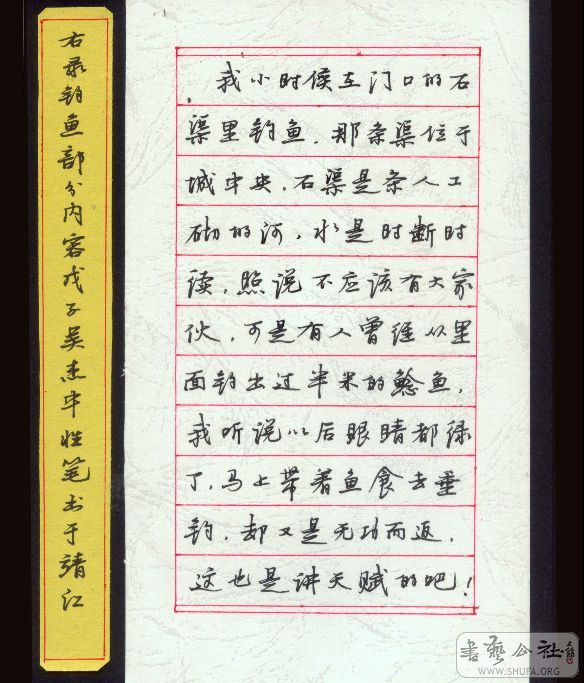 我小时候在门口的石
渠里钓鱼，那条渠位于
城中央，石渠是条人工
砌的河，水是时断时
续，照说不应该有大家
伙，可是有人曾经从里
面钓出过半米的鲶鱼，
我听说以后眼睛都绿
了，马上带着鱼食去垂
钓，却又是无功而返，
这也是讲天赋的吧！
右录钓鱼部分内容戊子吴杰中性笔书于靖江
書藝公社
WWW.SHUFA.ORG